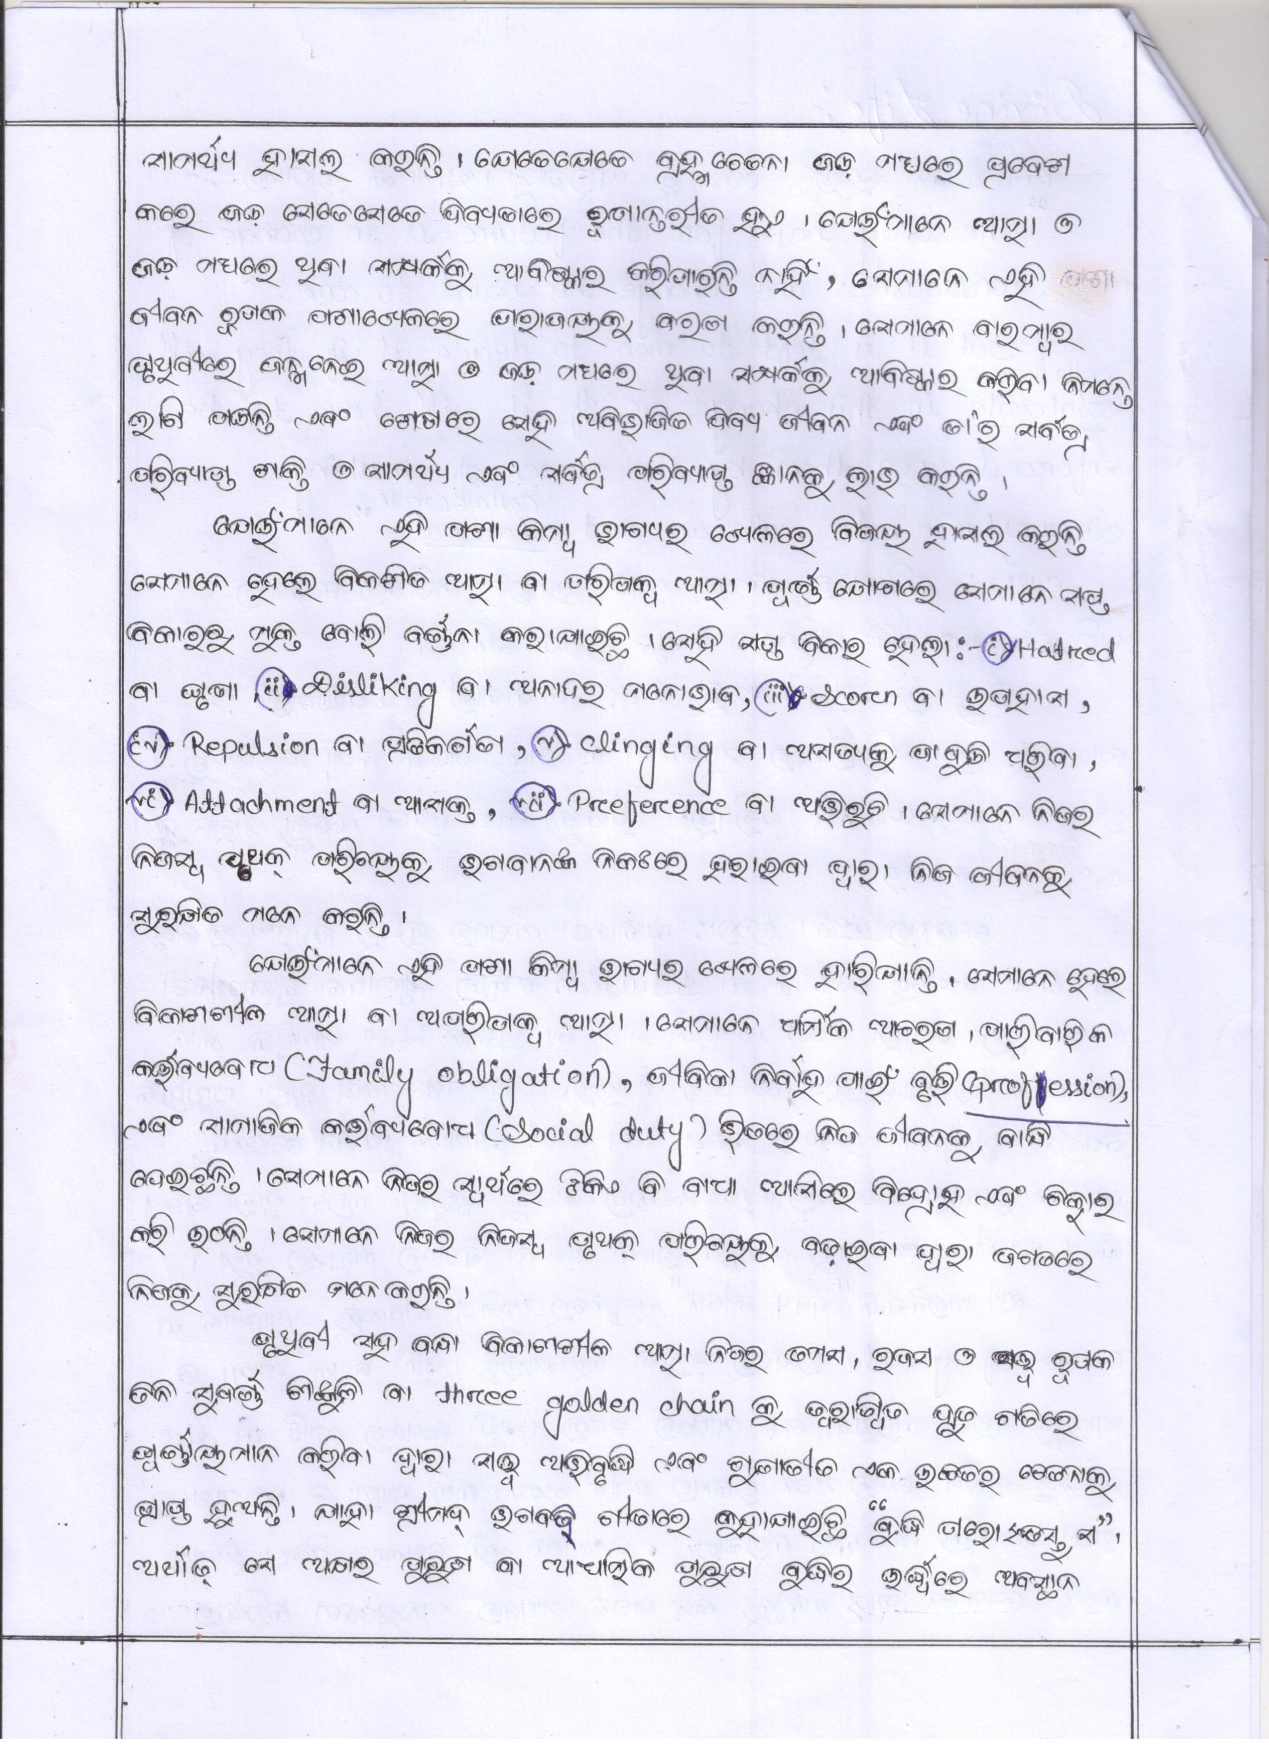 ସାମର୍ଥ୍ୟ ହାସଲ କରନ୍ତି । ଯେତେଯେତେ ବ୍ରହ୍ମଚେତନା ଜଡ଼ ମଧ୍ୟରେ ପ୍ରବେଶ
କରେ ଜଡ଼ ସେତେସେତେ ଦିବ୍ୟତାରେ ରୂପାନ୍ତରୀତ ହୁଏ । ଯେଉଁମାନେ ଆତ୍ମା ଓ
ଜଡ଼ ମଧ୍ୟରେ ଥିବା ସମ୍ପର୍କକୁ ଆବିଷ୍କାର କରିପାରନ୍ତି ନାହିଁ, ସେମାନେ ଏହି ପଶା
ଜୀବନ ରୂପକ ପଶାଖେଳରେ ପରାଜୟକୁ ବରଣ କରନ୍ତି । ସେମାନେ ବାରମ୍ବାର
ପୃଥିବୀରେ ଜନ୍ମନେଇ ଆତ୍ମା ଓ ଜଡ଼ ମଧ୍ୟରେ ଥିବା ସମ୍ପର୍କକୁ ଆବିଷ୍କାର କରିବା ନିମନ୍ତେ
ଲାଗି ପଡନ୍ତି ଏବଂ ଶେଷରେ ସେହି ଅବିଭାଜିତ ଦିବ୍ୟ ଜୀବନ ଏବଂ ତା'ର ସର୍ବତ୍ର
ପରିବ୍ୟାପ୍ତ ଶକ୍ତି ଓ ସାମର୍ଥ୍ୟ ଏବଂ ସର୍ବତ୍ର ପରିବ୍ୟାପ୍ତ ଜ୍ଞାନକୁ ଲାଭ କରନ୍ତି ।
ଯେଉଁମାନେ ଏହି ପଶା କିମ୍ବା ଭାଗ୍ୟର ଖେଳରେ ବିଜୟ ହାସଲ କରନ୍ତି
ସେମାନେ ହେଲେ ବିକଶିତ ଆତ୍ମା ବା ପରିପକ୍ୱ ଆତ୍ମା । ପୂର୍ଣ୍ଣ ଯୋଗରେ ସେମାନେ ସପ୍ତ
ବିକାରରୁ ମୁକ୍ତ ବୋଲି ବର୍ଣ୍ଣନା କରାଯାଇଛି । ସେହି ସପ୍ତ ବିକାର ହେଲା:- (i) Hatred
ବା ଘୃଣା (ii) Disliking ବା ଅନାଦର ମନୋଭାବ, (iii) Scorn ବା ଉପହାସ,
(iv) Repulsion ବା ପ୍ରତିକର୍ଷତା, (v) clinging ବା ଅସତ୍ୟକୁ ଜାବୁଡି ଧରିବା,
(vi) Attachment ବା ଆସକ୍ତ, (vii) Preference ବା ଅଭିରୁଚି । ସେମାନେ ନିଜର
ନିଜସ୍ୱ ପୃଥକ୍ ପରିଚୟକୁ ଭଗବାନଙ୍କ ନିକଟରେ ହରାଇବା ଦ୍ୱାରା ନିଜ ଜୀବନକୁ
ସୁରକ୍ଷିତ ମନେ କରନ୍ତି ।
ଯେଉଁମାନେ ଏହି ପଶା କିମ୍ବା ଭାଗ୍ୟର ଖେଳରେ ହାରିଯାନ୍ତି, ସେମାନେ ହେଲେ
ବିକାଶଶୀଳ ଆତ୍ମା ବା ଅପରିପକ୍ୱ ଆତ୍ମା । ସେମାନେ ଧାର୍ମିକ ଆଚରଣ, ପାରିବାରିକ
କର୍ତ୍ତବ୍ୟବୋଧ (Family obligation), ଜୀବିକା ନିର୍ବାହ ପାଇଁ ବୃତ୍ତି (profession),
ଏବଂ ସାମାଜିକ କର୍ତ୍ତବ୍ୟବୋଧ (Social duty) ଭିତରେ ନିଜ ଜୀବନକୁ ବାନ୍ଧି
ଦେଇଛନ୍ତି । ସେମାନେ ନିଜର ସ୍ୱାର୍ଥରେ ଟିକିଏ ବି ବାଧା ଆସିଲେ ବିଦ୍ରୋହ ଏବଂ ଚିତ୍କାର
କରି ଉଠନ୍ତି । ସେମାନେ ନିଜର ନିଜସ୍ୱ ପୃଥକ୍ ପରିଚୟକୁ ବଢ଼ାଇବା ଦ୍ୱାରା ଜଗତରେ
ନିଜକୁ ସୁରକ୍ଷିତ ମନେ କରନ୍ତି ।
ପୃଥିବୀ ସହ ବନ୍ଧା ବିକାଶଶୀଳ ଆତ୍ମା ନିଜର ତମସ, ରଜସ ଓ ସତ୍ତ୍ୱ ରୂପକ
ତିନି ସୁବର୍ଣ୍ଣ ଶିଙ୍କୁଳି ବା three golden chain କୁ ତ୍ୱରାନ୍ୱିତ ଦ୍ରୁତ ଗତିରେ
ଘୂର୍ଣ୍ଣୟମାନ କରିବା ଦ୍ୱାରା ସତ୍ତ୍ୱ ଅଭିବୃଦ୍ଧି ଏବଂ ଗୁଣାତୀତ ଏକ ଉଚ୍ଚତର ଚେତନାକୁ
ପ୍ରାପ୍ତ ହୁଅନ୍ତି । ଯାହା ଶ୍ରୀମଦ୍ ଭଗବତ୍ ଗୀତାରେ କୁହାଯାଇଛି “ବୁଦ୍ଧି ପରୋଽତସ୍ତୁ ସ” ।
ଅର୍ଥାତ୍ ସେ ଅକ୍ଷର ପୁରୁଷ ବା ଆଧ୍ୟାତ୍ମିକ ପୁରୁଷ ବୁଦ୍ଧିର ଊର୍ଦ୍ଧ୍ୱରେ ଅବସ୍ଥାନ